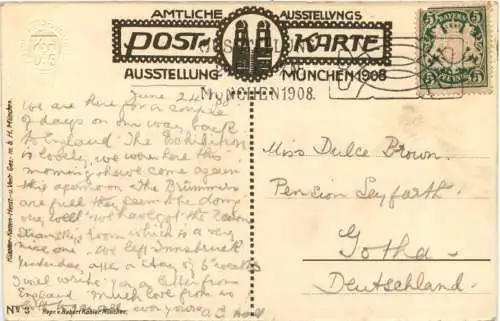 AMTLICHE AUSSTELLUNGS
POST- KARTE
AUSSTELLUNG MÜNCHEN 1908
MÜNCHEN 1908.
BAYERN
5 5
PFENNIG
June 24. 08
We are here for a couple
of days on our way back
to England. The Exhibition
is lovely, we were here this
morning & have come again
this afternoon
are full they seem to be doing
very well we have got the
room which is a very
nice one. We left Innsbruck
yesterday, after a stay of 5 weeks
I will write you a letter from
England. Much love from us
ever yours
Miss Dulce Brown.
Pension Seyfarth.
Gotha.
Deutschland.
Künstler-Karten-Herst.- u. Vertr. Ges. m. b. H. München.
No 3 Repr. v. Hubert Köhler München.